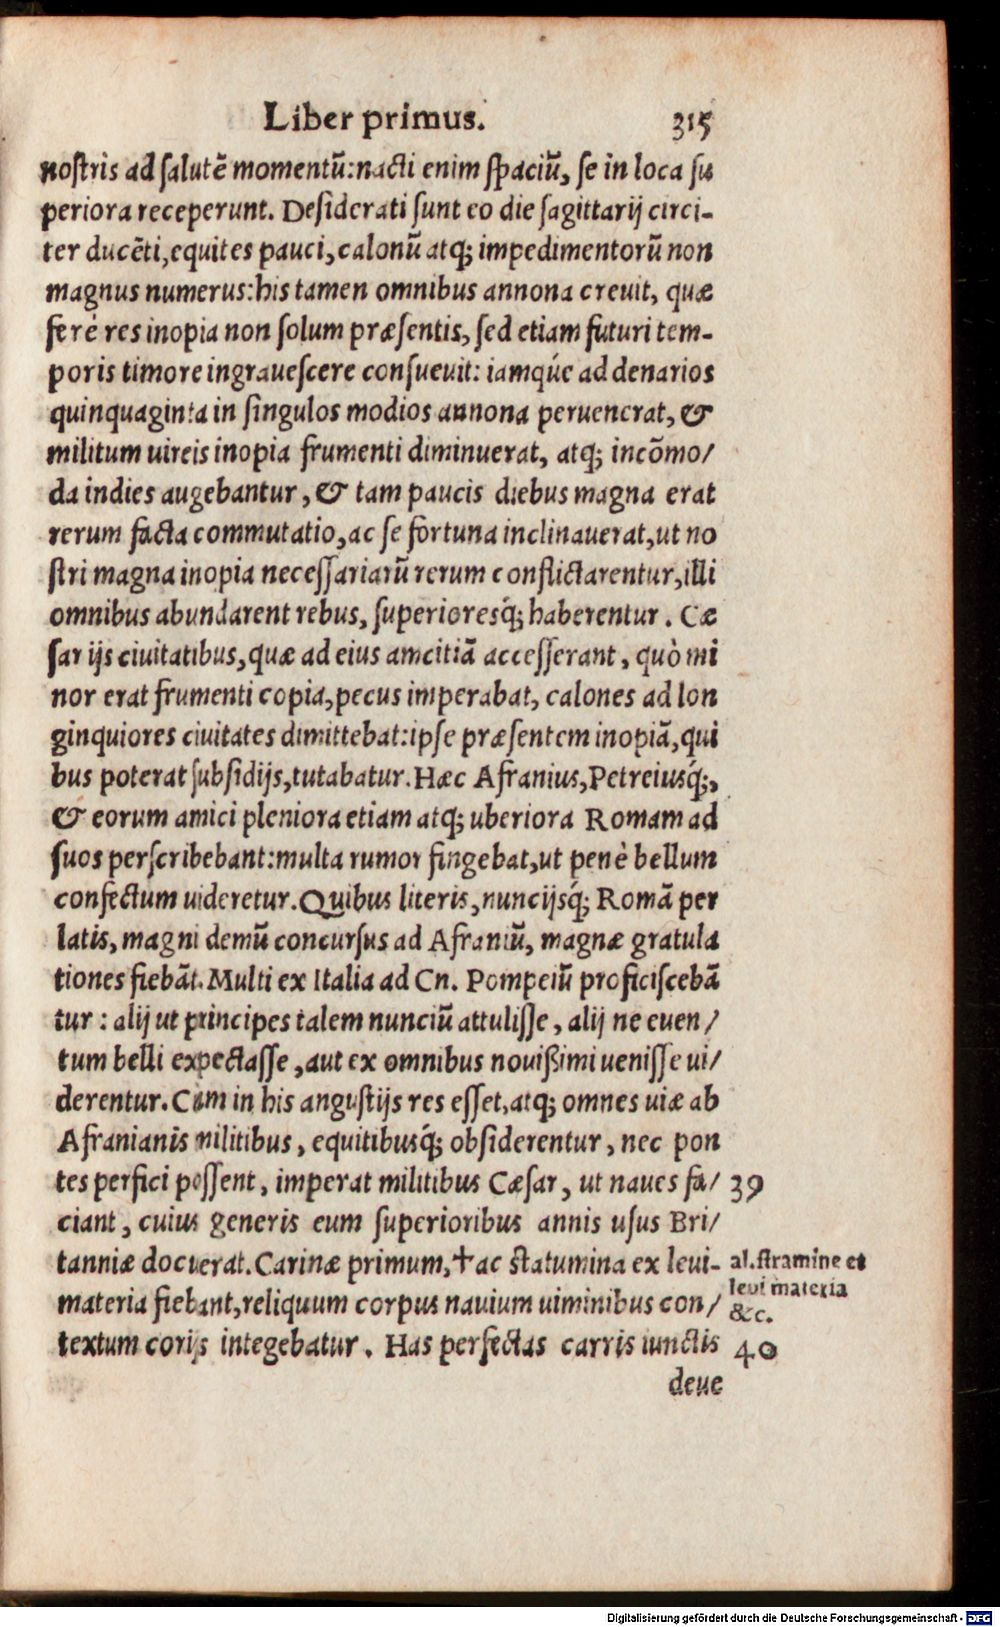 Liber primus. 315
nostris ad salutē momentū: nacti enim spaciū, se in loca su
periora receperunt. Desiderati sunt eo die sagittarij circi-
ter ducēti, equites pauci, calonū atq; impedimentorū non
magnus numerus: his tamen omnibus annona creuit, quæ
ferè res inopia non solum præsentis, sed etiam futuri tem-
poris timore ingrauescere consueuit: iamq́ue ad denarios
quinquaginta in singulos modios annona peruenerat, &
militum uireis inopia frumenti diminuerat, atq; incōmo/
da indies augebantur, & tam paucis diebus magna erat
rerum facta commutatio, ac se fortuna inclinauerat, ut no
stri magna inopia necessariarū rerum conflictarentur, illi
omnibus abundarent rebus, superioresq́; haberentur. Cæ
sar ijs ciuitatibus, quæ ad eius amcitiā accesserant, quò mi
nor erat frumenti copia, pecus imperabat, calones ad lon
ginquiores ciuitates dimittebat: ipse præsentem inopiā, qui
bus poterat subsidijs, tutabatur. Hæc Afranius, Petreiusq́;,
& eorum amici pleniora etiam atq; uberiora Romam ad
suos perscribebant: multa rumor fingebat, ut penè bellum
confectum uideretur. Quibus literis, nuncijsq́; Romā per
latis, magni demū concursus ad Afraniū, magnæ gratula
tiones fiebāt. Multi ex Italia ad Cn. Pompeiū proficiscebā
tur: alij ut principes talem nunciū attulisse, alij ne euen/
tum belli expectasse, aut ex omnibus nouißimi uenisse ui/
derentur. Cùm in his angustijs res esset, atq; omnes uiæ ab
Afranianis militibus, equitibusq́; obsiderentur, nec pon
tes perfici possent, imperat militibus Cæsar, ut naues fa/ 39
ciant, cuius generis eum superioribus annis usus Bri/
tanniæ docuerat. Carinæ primum, ✝ac statumina ex leui- al. stramine et
materia fiebant, reliquum corpus nauium uiminibus con/ leui materia
&c.
textum corijs integebatur. Has perfectas carris iunctis 40
deue
Digitalisierung gefördert durch die Deutsche Forschungsgemeinschaft - DFG